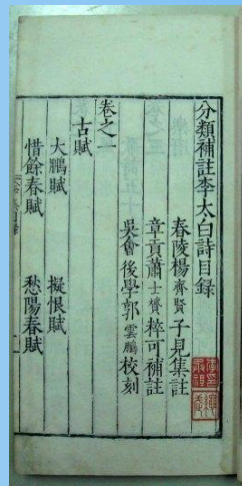 分類補註李太白詩目録
春陵楊齊賢子見集註
章貢蕭士贇粹可補註
吳會後學郭雲鵬校刻
卷之一
古賦
大鵬賦 擬恨賦
惜餘春賦 愁陽春賦